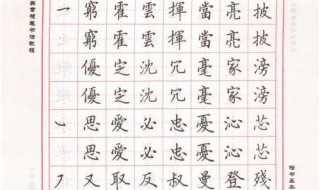 书法教程
一 窮 霍 雲 揮 當 亮 披
窮 霍 雲 揮 當 亮 披
優 定 沈 冗 毫 家 滂
優 定 沈 冗 毫 家 滂
思 愛 必 忠 憂 沁 芯
思 愛 必 忠 憂 沁 芯
又 取 反 叔 曼 登 殘
楷书基